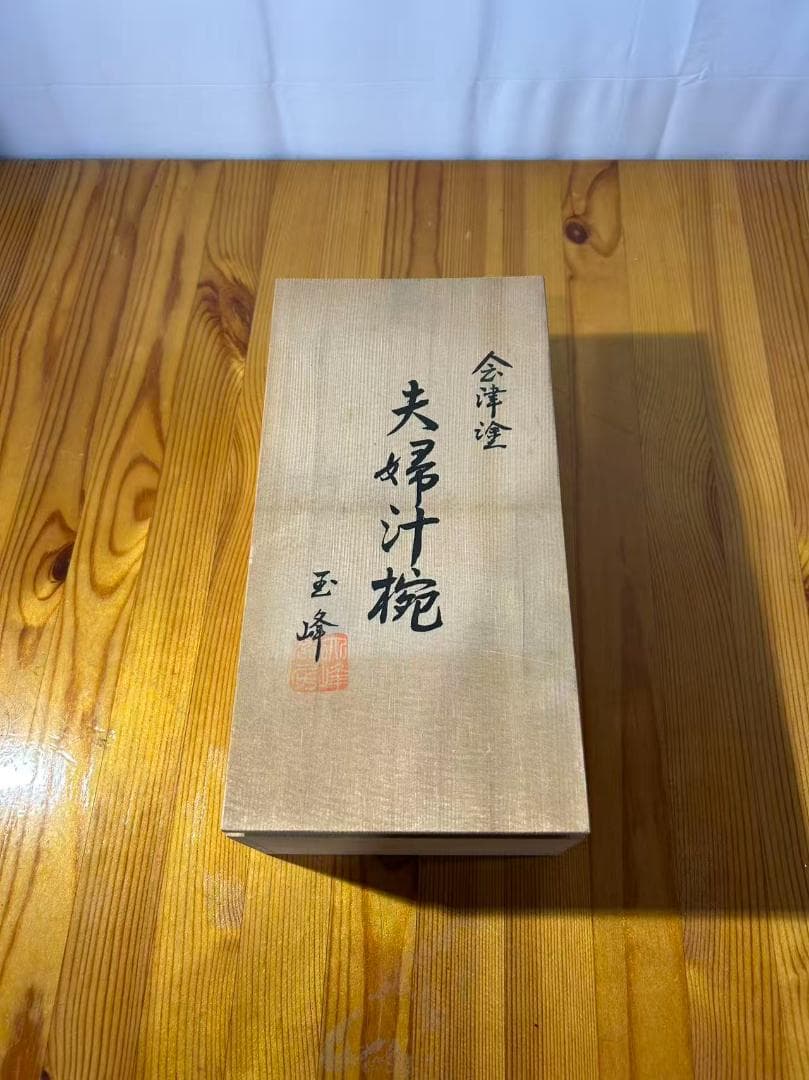 会津塗
夫婦汁椀
玉峰